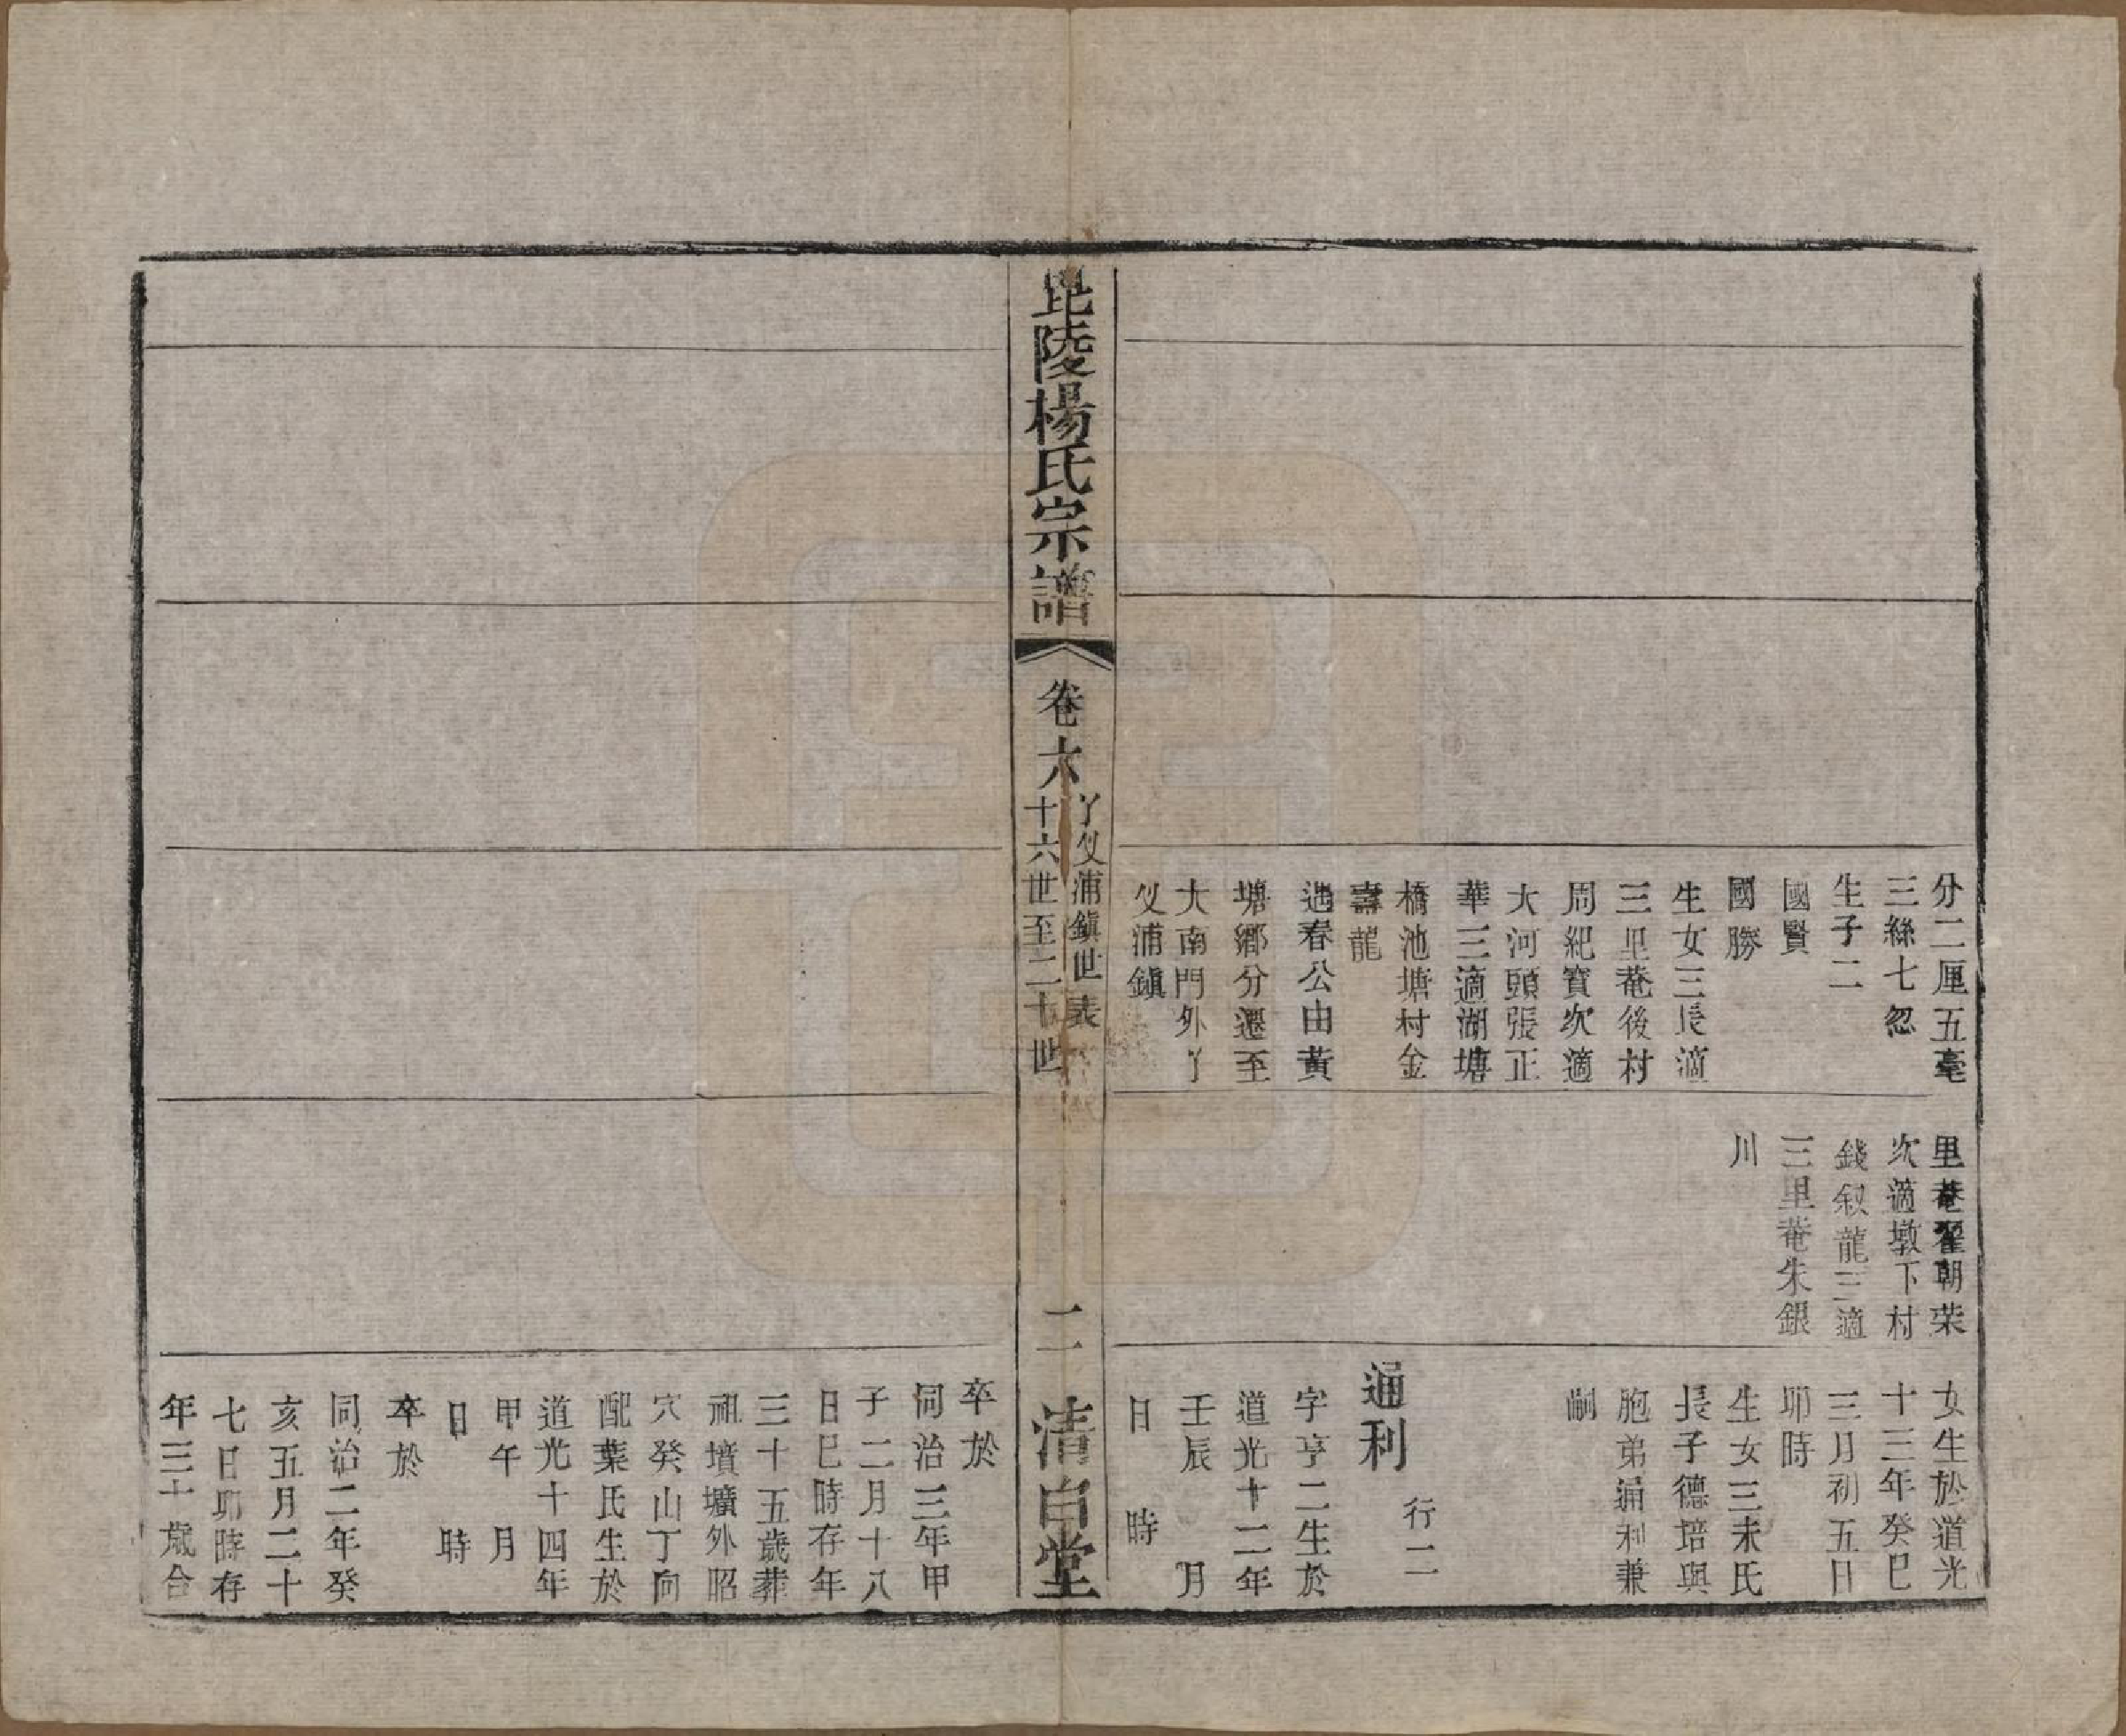 分二厘五毫
三絲七忽
生子二
國賢
國勝
生女三長適
三里菴後村
周紀寶次適
大河頭張正
華三適湖塘
橋池塘村金
壽龍
遇春公由黃
塘鄉分遷至
大南門外丫
乂浦鎭
里菴翟朝荣
次適墩下村
錢叙龍三適
三里菴朱銀
川
女生於道光
十三年癸巳
三月初五日
卯時
生女三未氏
長子德培與
胞弟通利兼
嗣
通利
行二
字亨二生於
道光十二年
壬辰 月
日 時
毘陵楊氏宗譜
卷六
丫乂浦鎭世表
十六世至二十世
二
清白堂
卒於
同治三年甲
子二月十八
日巳時存年
三十五歲葬
祖墳壙外昭
穴癸山丁向
配葉氏生於
道光十四年
甲午 月
日 時
卒於
同治二年癸
亥五月二十
七日卯時存
年三十歲合